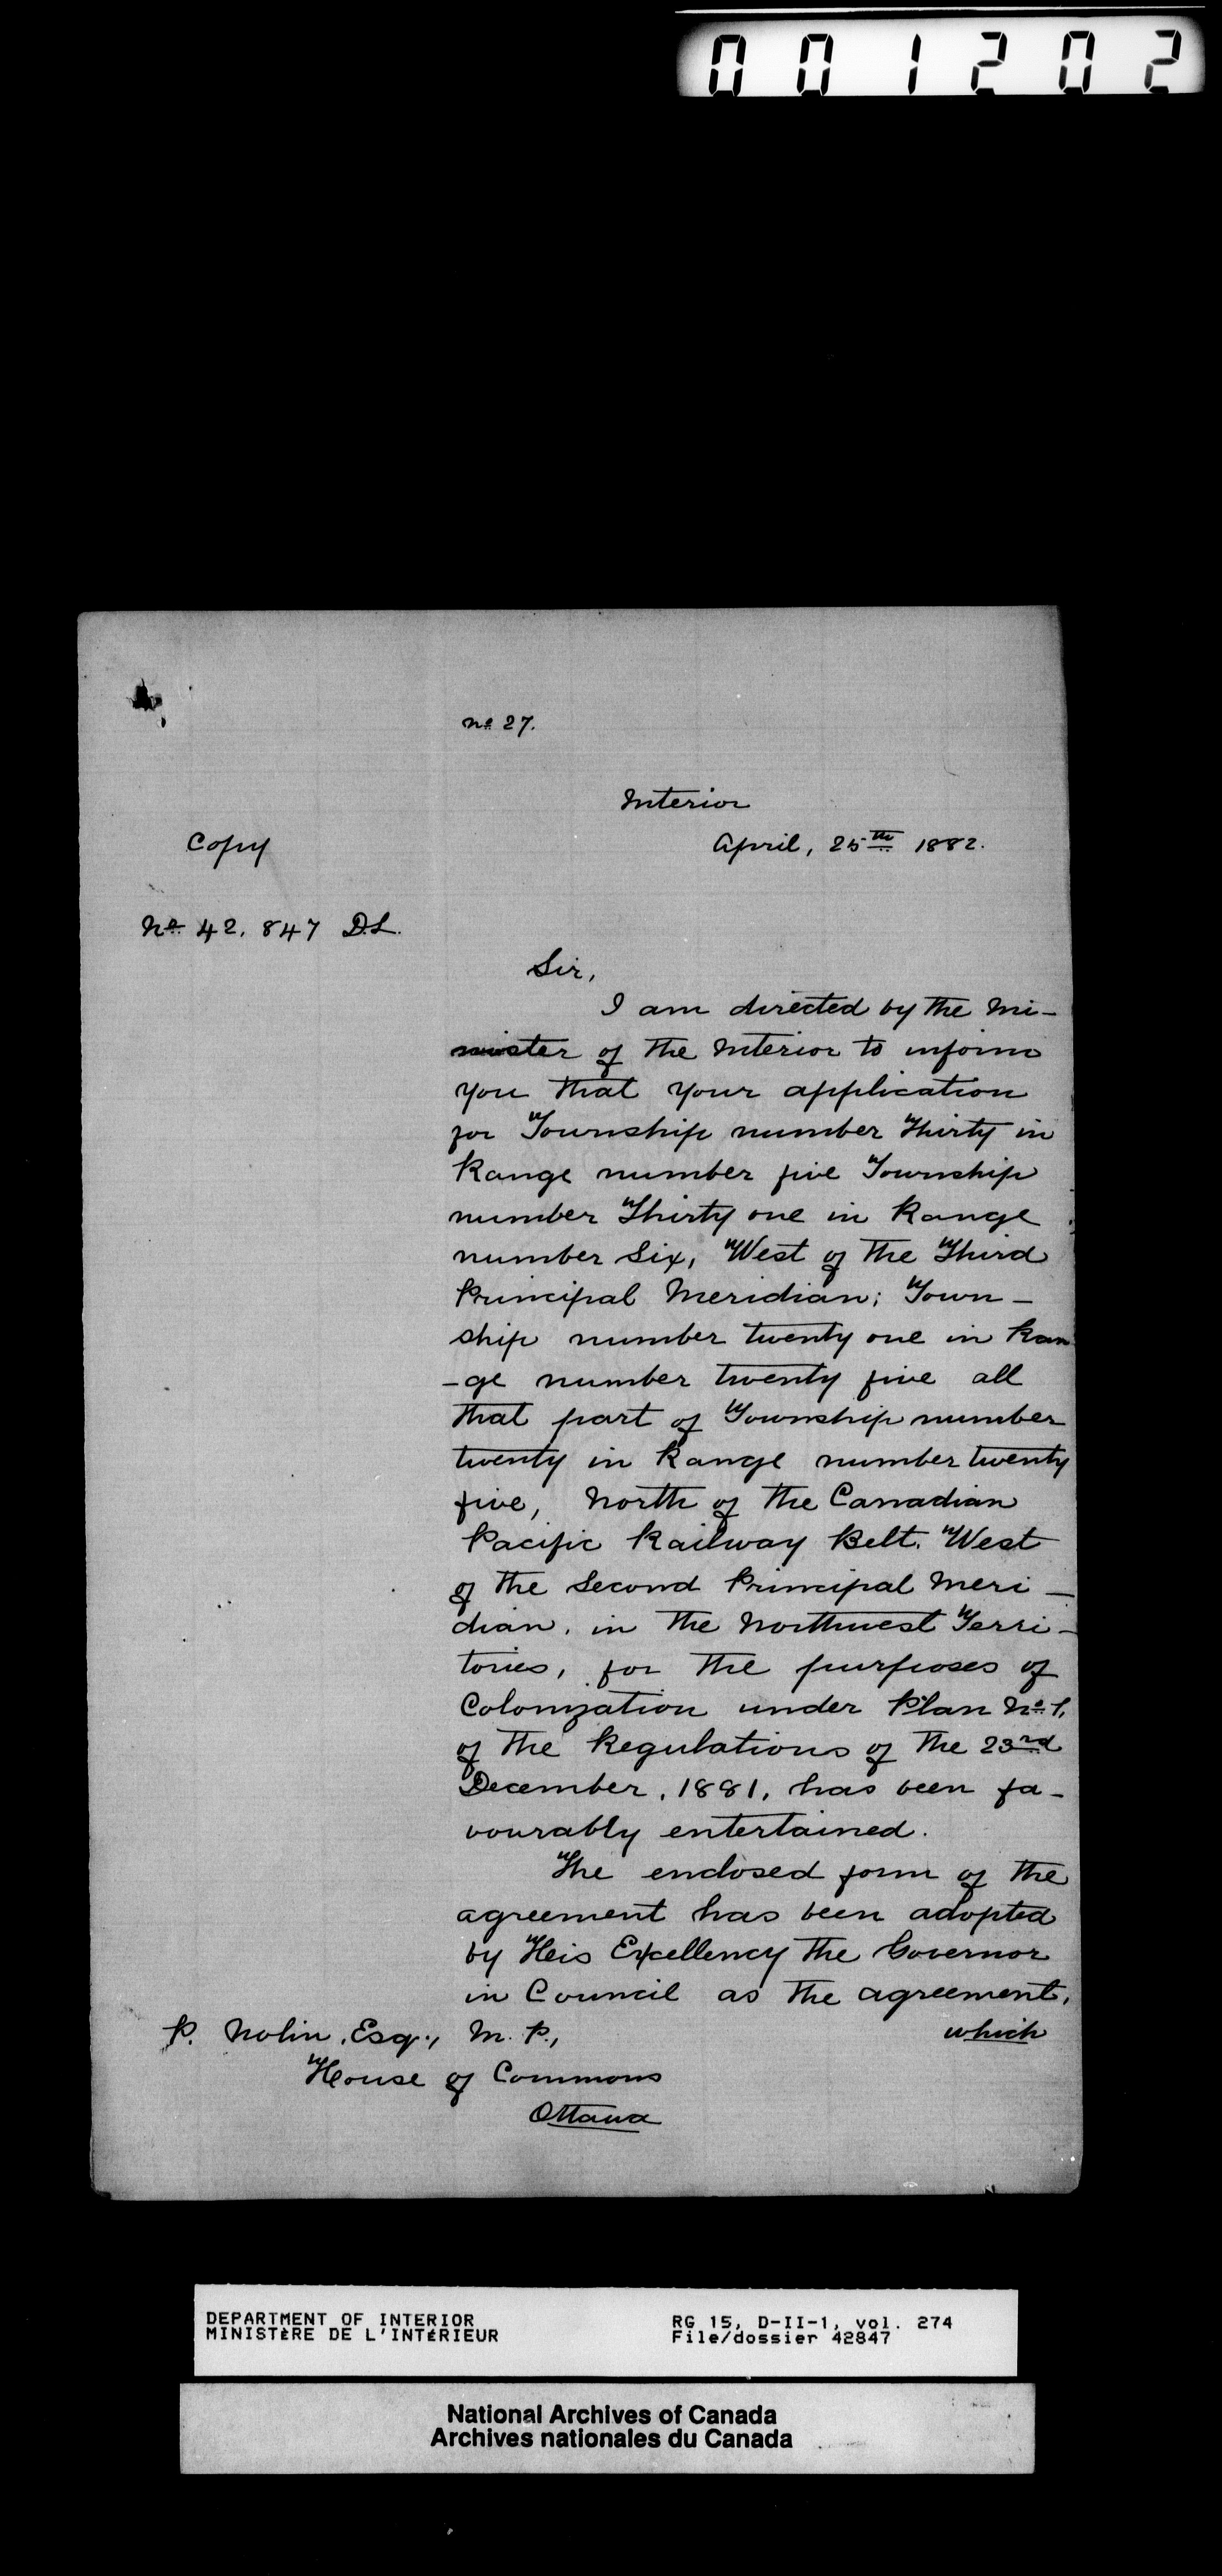 001202
No 27.
Interior
Copy
April, 25th 1882.
No. 42,847 D.L.
Sir,
I am directed by the Mi-
nister of the Interior to inform
you that your application
for Township number Thirty in
Range number five Township
number Thirty one in Range
number Six, West of the Third
Principal Meridian; Town-
ship number twenty one in Ran
-ge number twenty five all
that part of Township number
twenty in Range number twenty
five, North of the Canadian
Pacific Railway Belt. West
of the Second Principal Meri-
dian, in the Northwest Terri-
tories, for the purposes of
Colonization under Plan No 1,
of the Regulations of the 23rd
December, 1881, has been fa-
vourably entertained.
The enclosed form of the
agreement has been adopted
by His Excellency the Governor
in Council as the agreement,
which
P. Nolin, Esq., M.P.,
House of Commons
Ottawa
DEPARTMENT OF INTERIOR
MINISTÈRE DE L'INTÉRIEUR
RG 15, D-II-1, vol. 274
File/dossier 42847
National Archives of Canada
Archives nationales du Canada